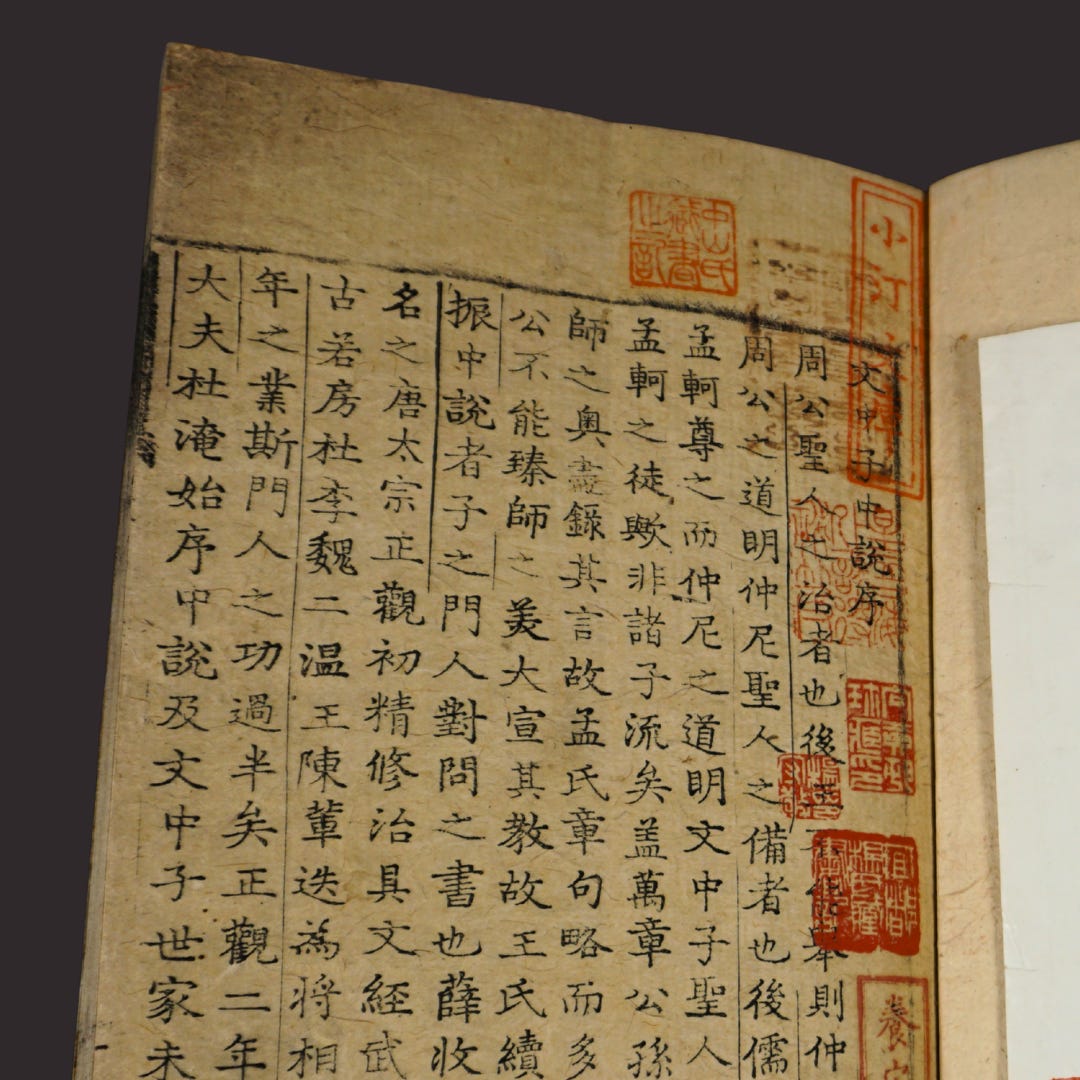 小汀
文中子中說序
周公聖人之治者也後王不能舉則仲
周公之道明仲尼聖人之備者也後儒
孟軻尊之而仲尼之道明文中子聖人
孟軻之徒歟非諸子流矣盖萬章公孫
師之奧盡錄其言故孟氏章句略而多
公不能臻師之美大宣其教故王氏續
振中說者子之門人對問之書也薛收
名之唐太宗正觀初精修治具文經武
古若房杜李魏二温王陳輩迭為將相
年之業斯門人之功過半矣正觀二年
大夫杜淹始序中說及文中子世家未
中山氏
藏書
之記
養安